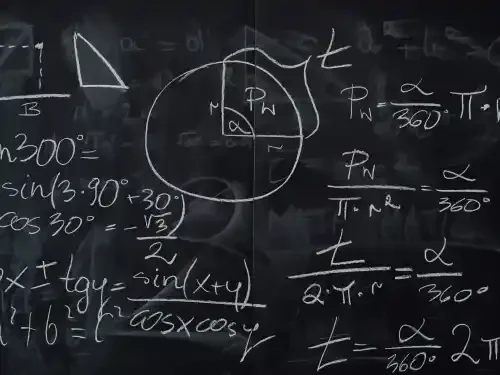 B
n300°=
sin(3·90°+30°)
cos30°=-√3/2
gx±tgy=sin(x+y)/cosxcosy
²+b²=c²
t
P_N
r
α
r
P_N=α/360°π·r
P_N/π·r²=α/360°
t/2·π·r=α/360°
t=α/360°2π